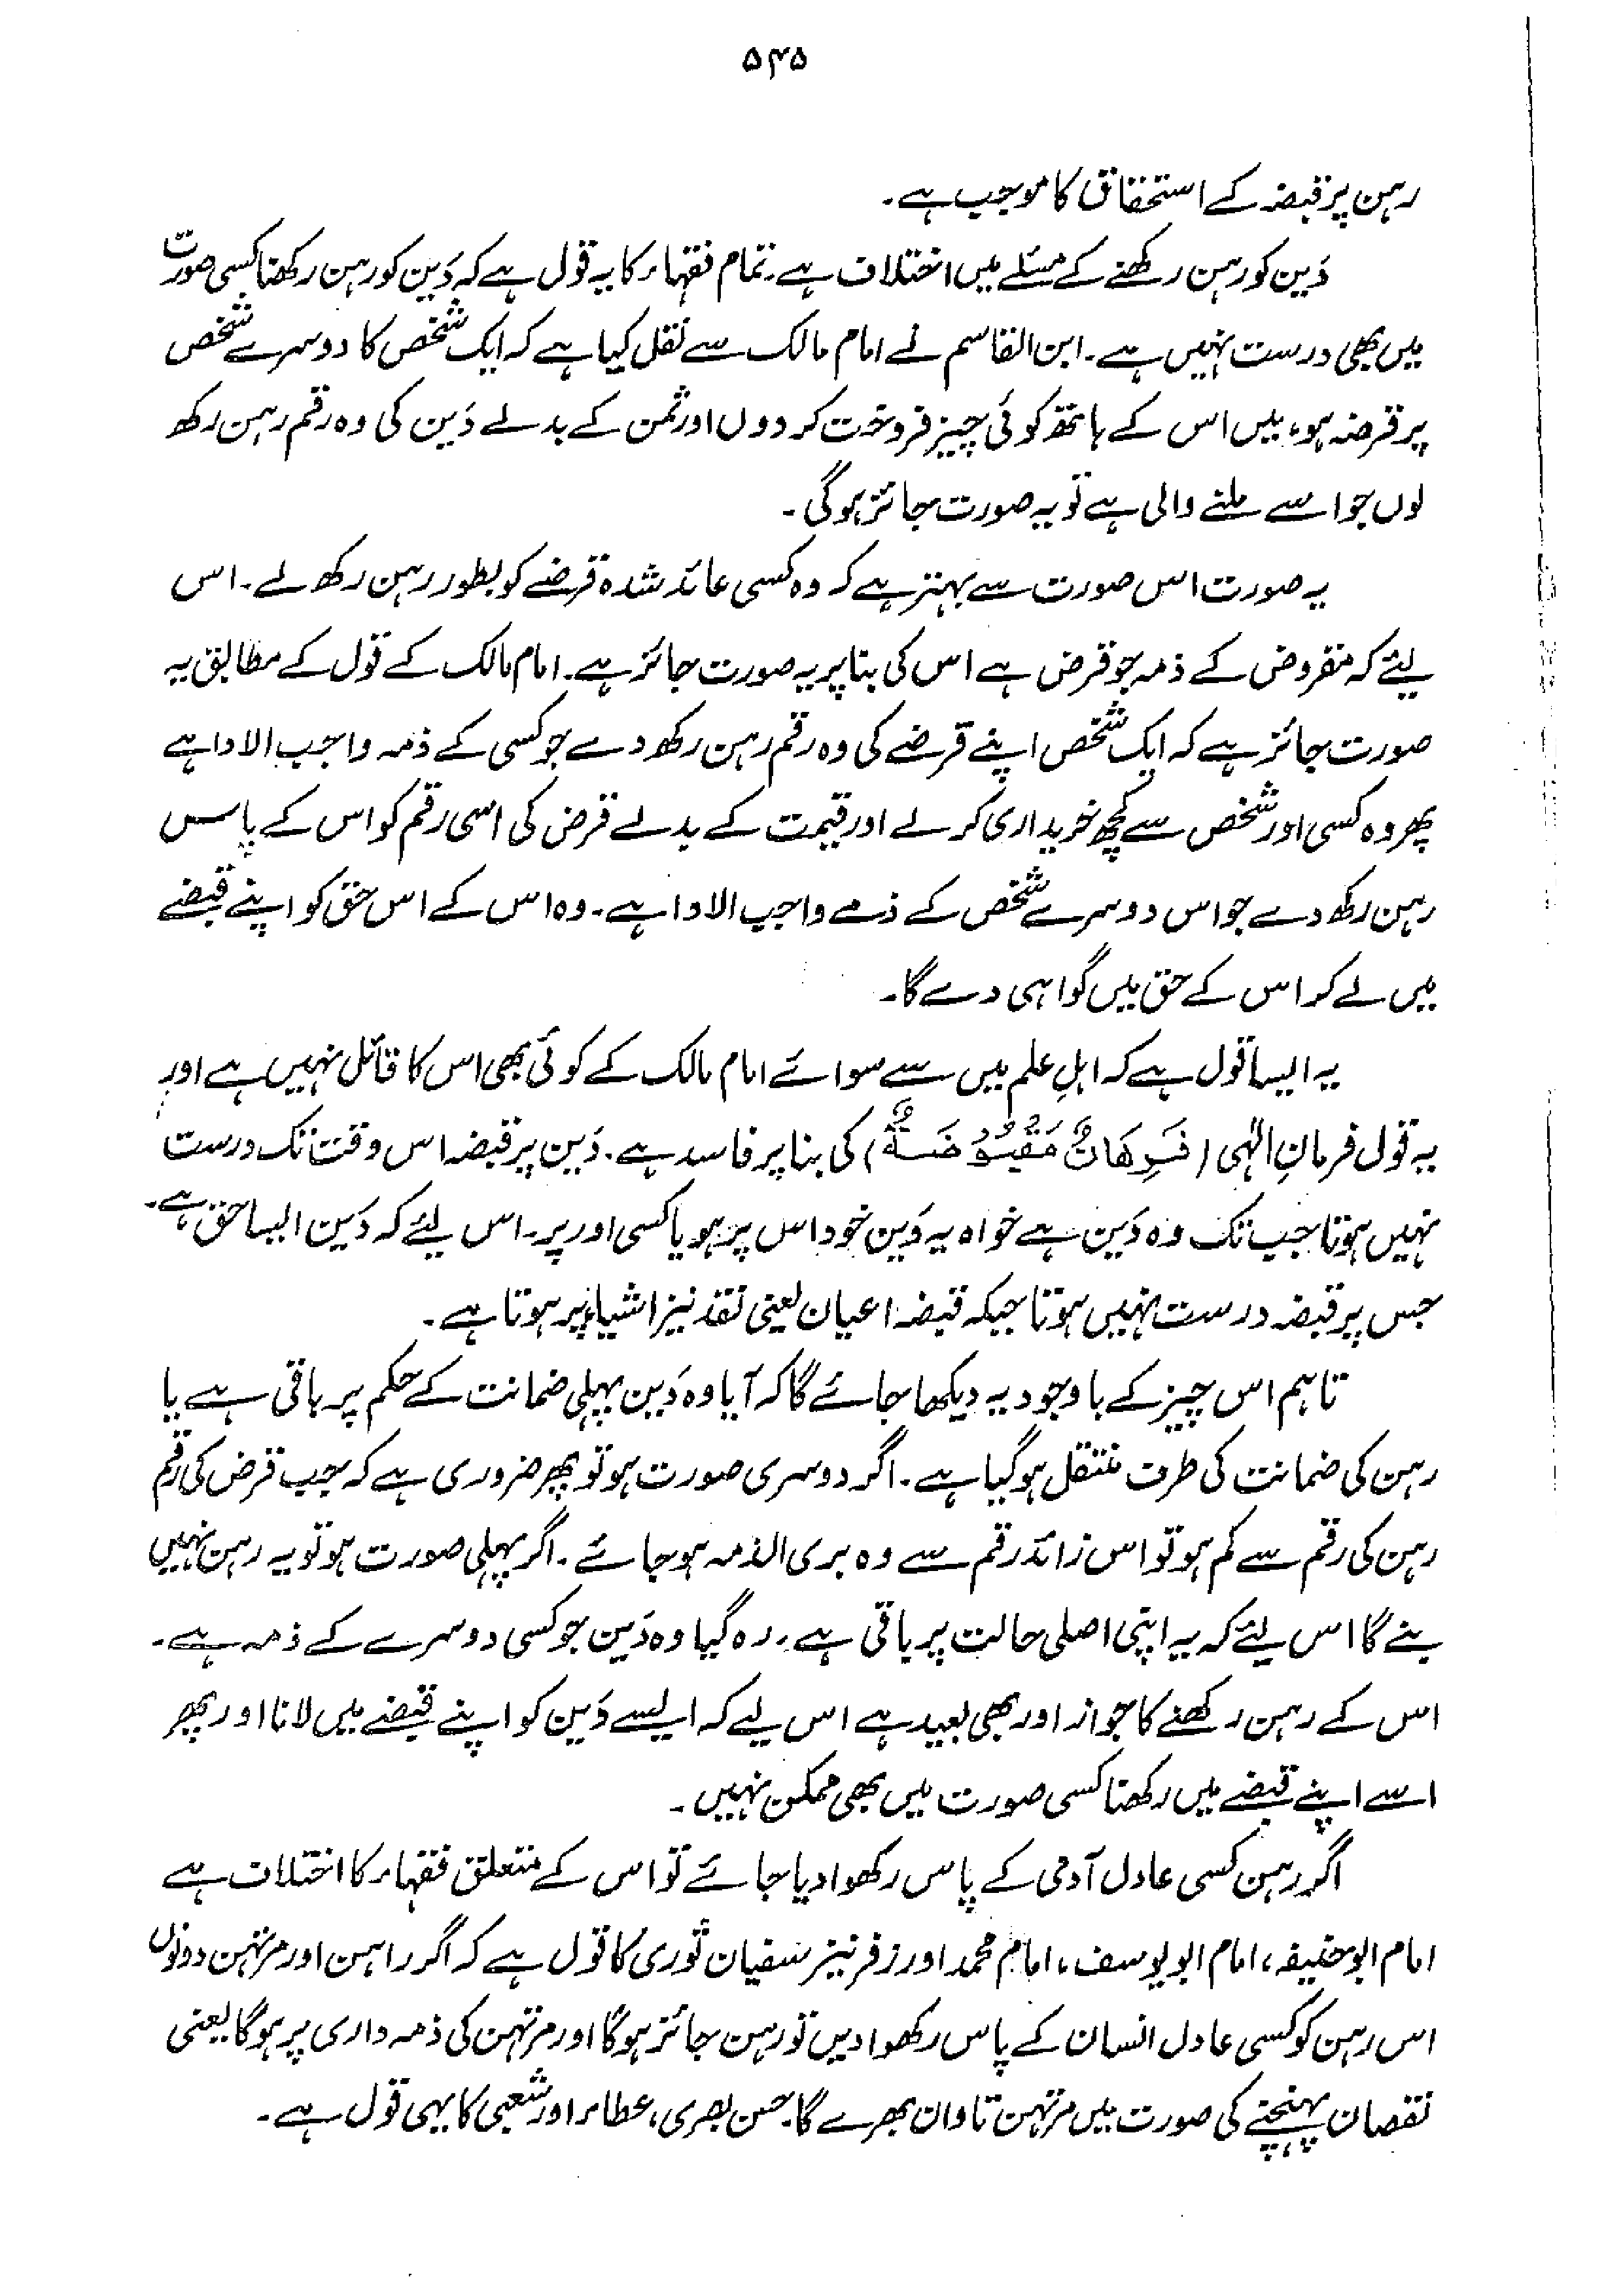 ۵۴۵
رہن پر قبضہ کے استحقاق کا موجب ہے۔
دَین کو رہن رکھنے کے مسئلے میں اختلاف ہے۔ تمام فقہاء کا یہ قول ہے کہ دَین کو رہن رکھنا کسی صورت
میں بھی درست نہیں ہے۔ ابن القاسم نے امام مالک سے نقل کیا ہے کہ ایک شخص کا دوسرے شخص
پر قرضہ ہو، میں اس کے ہاتھ کوئی چیز فروخت کر دوں اور ثمن کے بدلے دَین کی وہ رقم رہن رکھ
لوں جو اسے ملنے والی ہے تو یہ صورت جائز ہو گی۔
یہ صورت اس صورت سے بہتر ہے کہ وہ کسی عائد شدہ قرضے کو بطور رہن رکھ لے۔ اس
لیئے کہ مقروض کے ذمہ جو قرض ہے اس کی بنا پر یہ صورت جائز ہے۔ امام مالک کے قول کے مطابق یہ
صورت جائز ہے کہ ایک شخص اپنے قرضے کی وہ رقم رہن رکھ دے جو کسی کے ذمہ واجب الادا ہے
پھر وہ کسی اور شخص سے کچھ خریداری کر لے اور قیمت کے بدلے قرض کی اسی رقم کو اس کے پاس
رہن رکھ دے جو اس دوسرے شخص کے ذمے واجب الادا ہے۔ وہ اس کے اس حق کو اپنے قبضے
میں لے کر اس کے حق میں گواہی دے گا۔
یہ ایسا قول ہے کہ اہلِ علم میں سے سوائے امام مالک کے کوئی بھی اس کا قائل نہیں ہے اور
یہ قول فرمانِ الٰہی (فَرِهَانٌ مَقْبُوْضَةٌ) کی بنا پر فاسد ہے۔ دَین پر قبضہ اس وقت تک درست
نہیں ہوتا جب تک وہ دَین ہے خواہ یہ دَین خود اس پر ہو یا کسی اور پر۔ اس لیئے کہ دَین ایسا حق ہے۔
جس پر قبضہ درست نہیں ہوتا جبکہ قبضہ اعیان یعنی نقد نیز اشیاء پر ہوتا ہے۔
تاہم اس چیز کے باوجود یہ دیکھا جائے گا کہ آیا وہ دَین پہلی ضمانت کے حکم پر باقی ہے یا
رہن کی ضمانت کی طرف منتقل ہو گیا ہے۔ اگر دوسری صورت ہو تو پھر ضروری ہے کہ جب قرض کی رقم
رہن کی رقم سے کم ہو تو اس زائد رقم سے وہ بری الذمہ ہو جائے۔ اگر پہلی صورت ہو تو یہ رہن نہیں
بنے گا اس لیئے کہ یہ اپنی اصلی حالت پر باقی ہے۔ رہ گیا وہ دَین جو کسی دوسرے کے ذمہ ہے۔
اس کے رہن رکھنے کا جواز اور بھی بعید ہے اس لیے کہ ایسے دَین کو اپنے قبضے میں لانا اور پھر
اسے اپنے قبضے میں رکھنا کسی صورت میں بھی ممکن نہیں۔
اگر رہن کسی عادل آدمی کے پاس رکھوا دیا جائے تو اس کے متعلق فقہاء کا اختلاف ہے
امام ابو حنیفہ، امام ابو یوسف، امام محمد اور زفر نیز سفیان ثوری کا قول ہے کہ اگر راہن اور مرتہن دونوں
اس رہن کو کسی عادل انسان کے پاس رکھوا دیں تو رہن جائز ہوگا اور مرتہن کی ذمہ داری پر ہوگا یعنی
نقصان پہنچنے کی صورت میں مرتہن تاوان بھرے گا۔ حسن بصری، عطاء اور شعبی کا یہی قول ہے۔